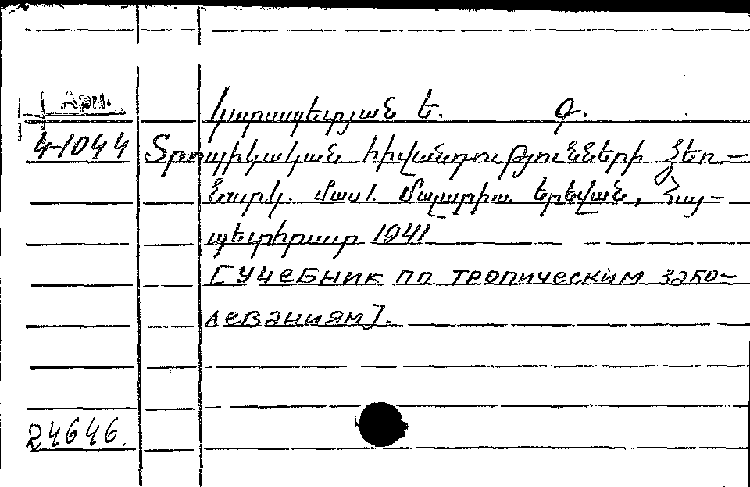 Арм.
4-1044
Կարապետյան Ե. Գ.
Տրոպիկական հիվանդությունների ձեռ-
նարկ. Մաս 1. Մալարիա. Երևան, Հայ-
պետհրատ 1941
[УЧЕБНИК ПО ТРОПИЧЕСКИМ ЗАБО-
ЛЕВАНИЯМ].
24646.